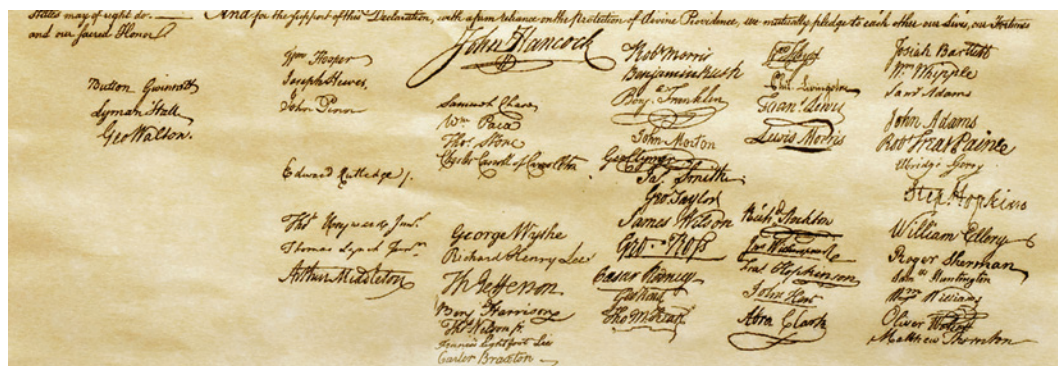 States may of right do. — And for the support of this Declaration, with a firm reliance on the protection of divine Providence, we mutually pledge to each other our Lives, our Fortunes
and our sacred Honor.
Button Gwinnett
Lyman Hall
Geo Walton.
Wm Hooper
Joseph Hewes,
John Penn
Edward Rutledge /.
Thos Heyward Junr.
Thomas Lynch Junr.
Arthur Middleton
John Hancock
Samuel Chase
Wm Paca
Thos. Stone
Charles Carroll of Carrollton
George Wythe
Richard Henry Lee
Th Jefferson
Benj Harrison
Thos Nelson jr.
Francis Lightfoot Lee
Carter Braxton
Robt Morris
Benjamin Rush
Benj. Franklin
John Morton
Geo Clymer
Jas. Smith
Geo. Taylor
James Wilson
Geo. Ross
Caesar Rodney
Geo Read
Tho M:Kean
Phil. Livingston
Frans. Lewis
Lewis Morris
Richd. Stockton
Jno Witherspoon
Fras. Hopkinson
John Hart
Abra Clark
Josiah Bartlett
Wm. Whipple
Saml Adams
John Adams
Robt Treat Paine
Elbridge Gerry
Step. Hopkins
William Ellery
Roger Sherman
Saml Huntington
Wm Williams
Oliver Wolcott
Matthew Thornton